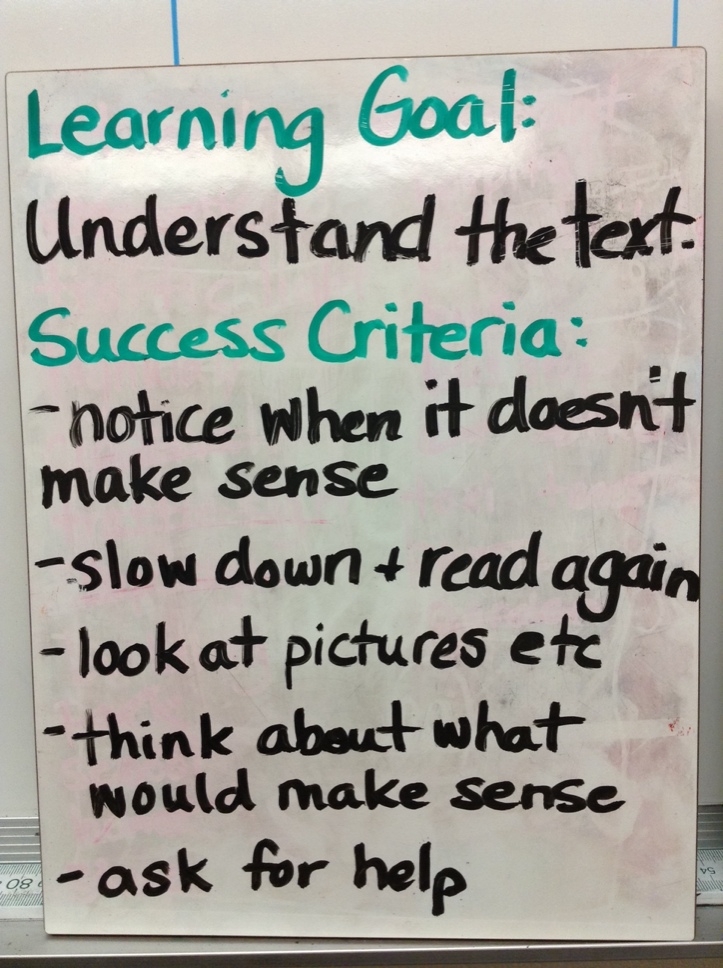 Learning Goal:
Understand the text.
Success Criteria:
- notice when it doesn't
make sense
- slow down + read again
- look at pictures etc
- think about what
would make sense
- ask for help